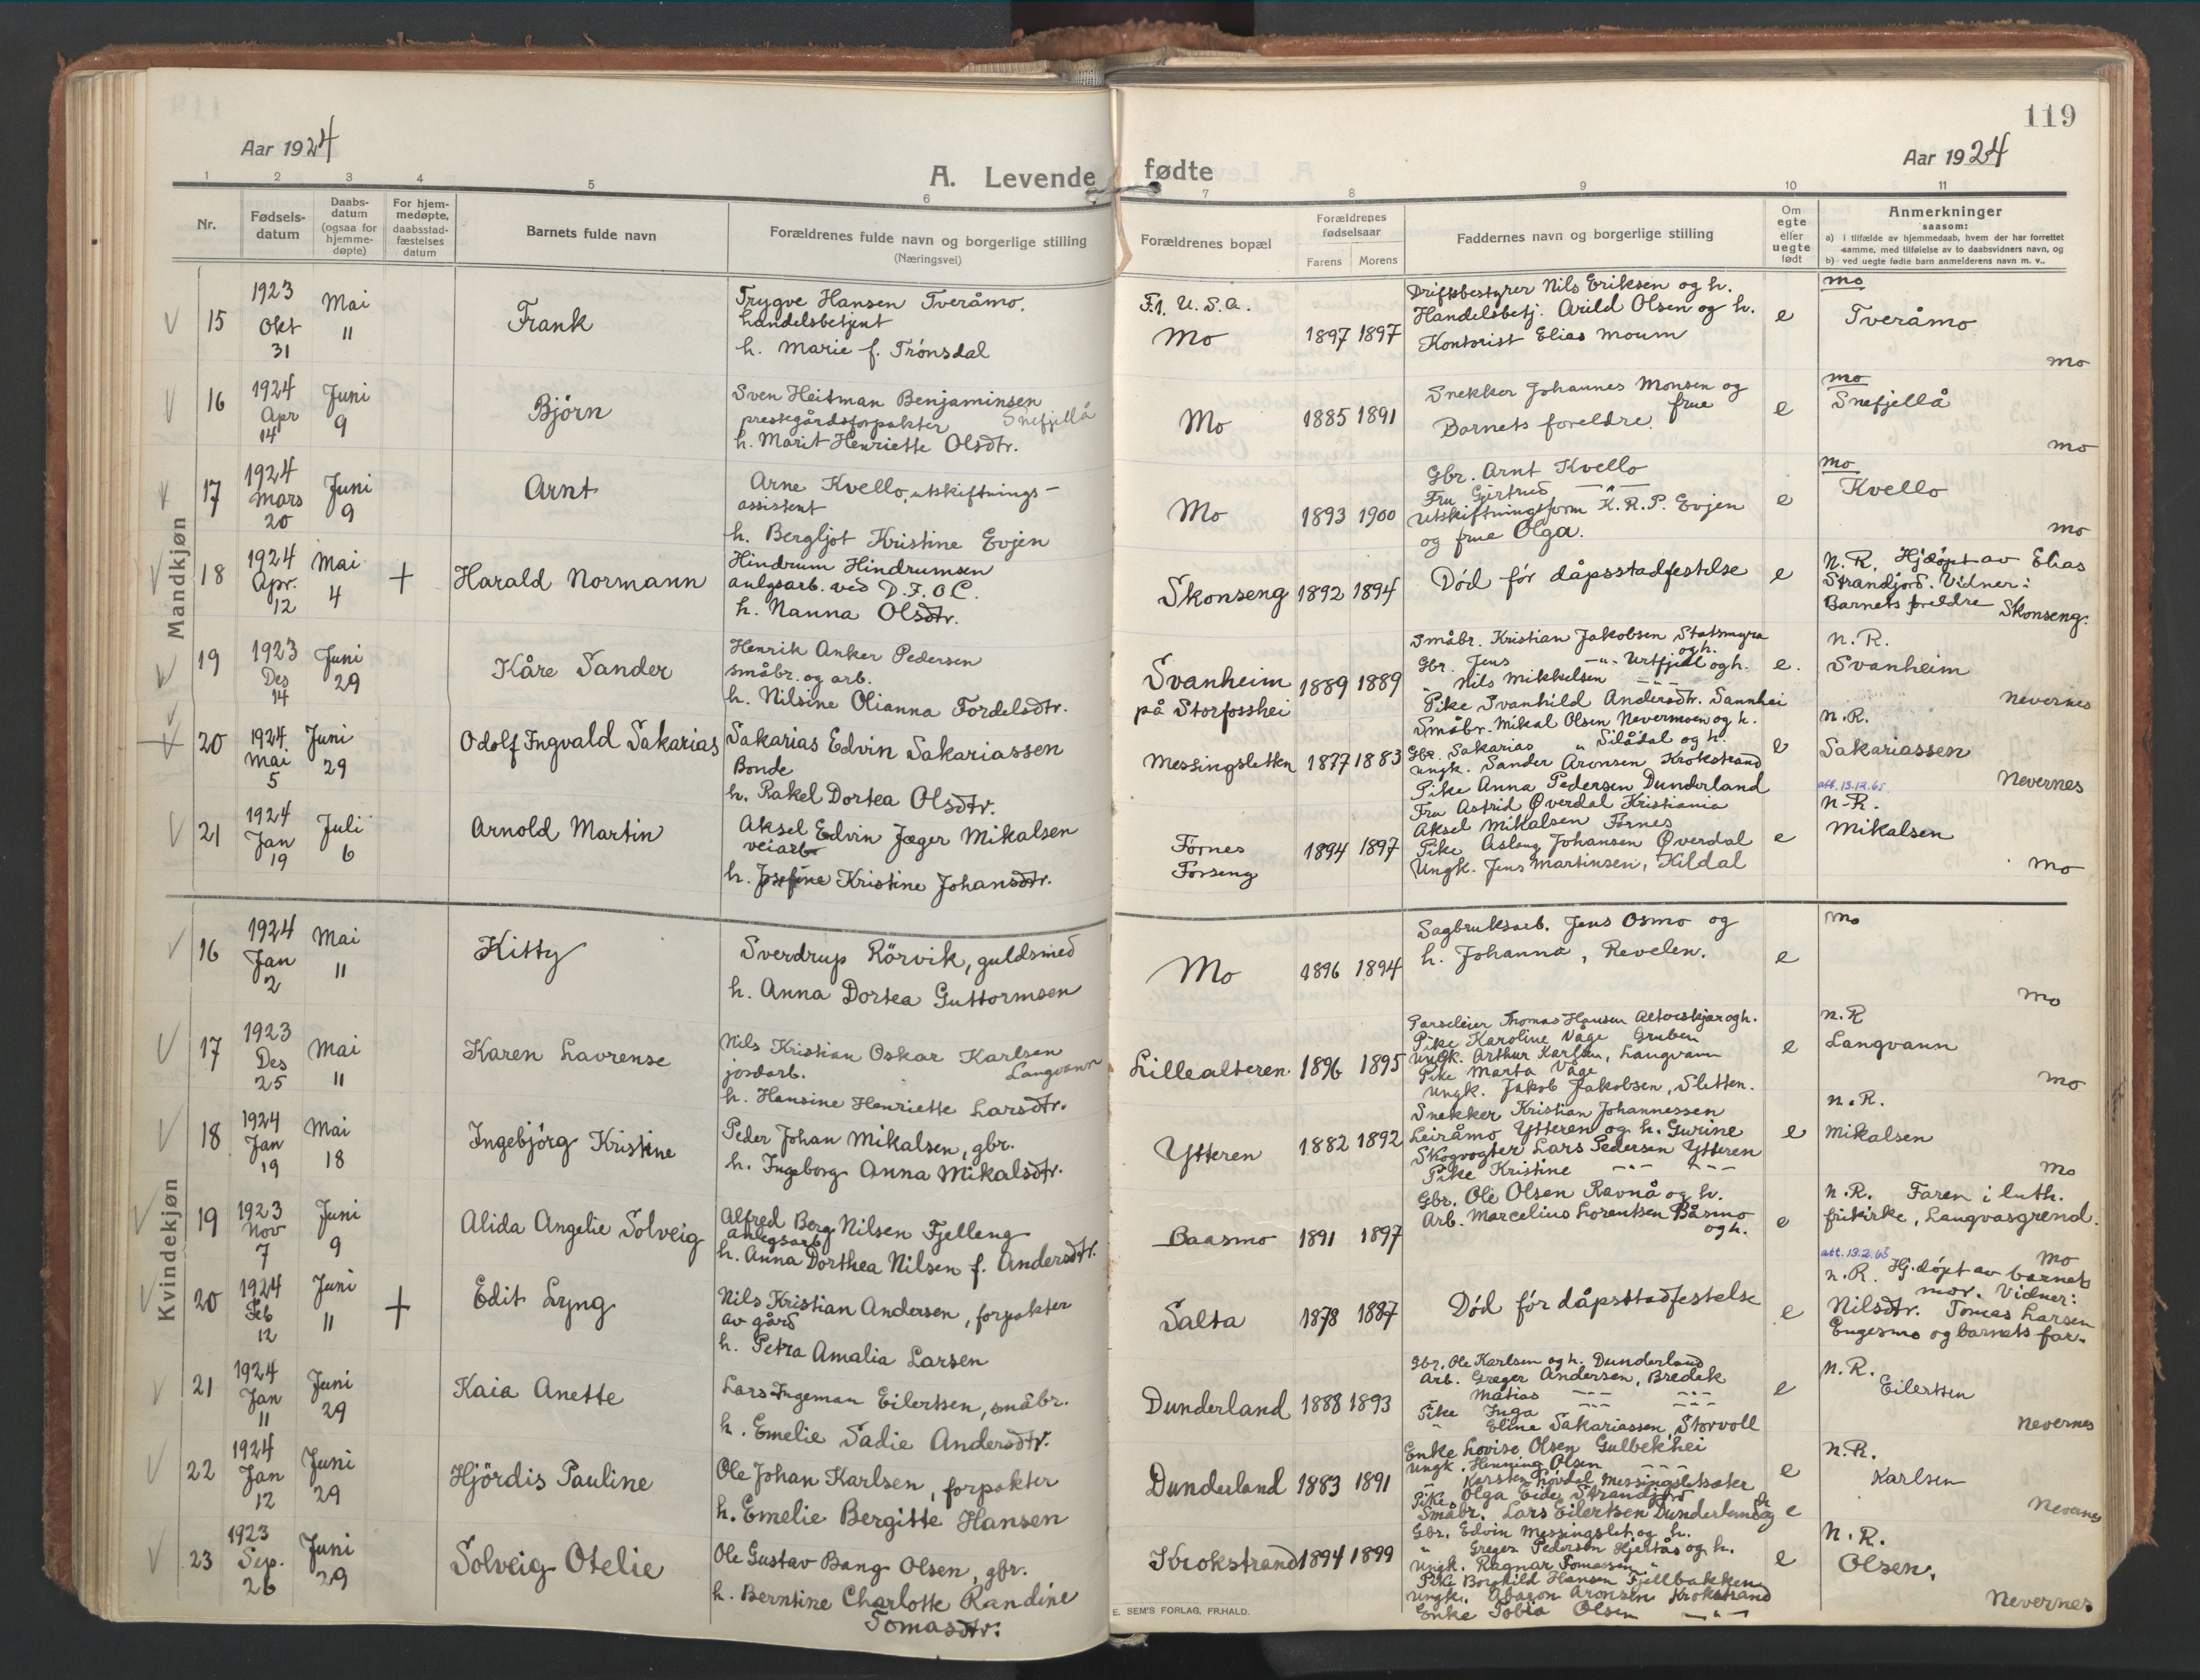 119
Aar 1924
A. Levende fødte
Aar 1924
1 2 3 4 5 6 7 8 9 10 11
Nr.
Fødsels-
datum
Daabs-
datum
(ogsaa for
hjemme-
døpte)
For hjem-
medøpte,
daabsstad-
fæstelses
datum
Barnets fulde navn
Forældrenes fulde navn og borgerlige stilling
(Næringsvei)
Forældrenes bopæl
Forældrenes
fødselsaar
Farens Morens
Faddernes navn og borgerlige stilling
Om
egte
eller
uegte
født
Anmerkninger
saasom:
a) i tilfælde av hjemmedaab, hvem der har forrettet
samme, med tilføielse av to daabsvidners navn, og
b) ved uegte fødte barn anmelderens navn m. v..
Mandkjøn
15
1923
Okt
31
Mai
11
Frank
Trygve Hansen Tveråmo,
handelsbetjent
h. Marie f. Trónsdal
F.1. U.S.A.
Mo
1897 1897
Driftsbestyrer Nils Eriksen og h.
Handelsbetj. Arild Olsen og h.
Kontorist Elias Moum
e
Mo
Tveråmo
Mo
16
1924
Apr
14
Juni
9
Bjórn
Sven Heitman Benjaminsen
prestegårdsforpakter Snefjellå
h. Marit Henriette Olsdtr.
Mo
1885 1891
Snekker Johannes Monsen og
frue
Barnets foreldre.
e
Mo
Snefjellå
Mo
17
1924
Mars
20
Juni
9
Arnt
Arne Kvello, utskiftnings-
assistent
h. Bergljot Kristine Evjen
Mo
1893 1900
Gbr. Arnt Kvello
Fru Gjertrud -"-
Utskiftningsform K.R.P. Evjen
og frue Olga.
e
Mo
Kvello
Mo
18
1924
Apr.
12
Mai
4
+
Harald Normann
Hindrum Hindrumsen
anlgsarb. ved D.F.O C.
h. Nanna Olsdtr.
Skonseng
1892 1894
Död för dåpsstadfestelse
e
N.R. Hjdöpt av Elias
Strandjord. Vidner:
Barnets foreldre Skonseng.
19
1923
Des
14
Juni
29
Kåre Sander
Henrik Anker Pedersen
småbr. og arb.
h. Nilsine Olianna Fordelsdtr.
Svanheim
på Storfosshei
1889 1889
Småbr. Kristian Jakobsen Statsmyra
og h.
Gbr. Jens -"- Urtfjell og h.
" Nils Mikkelsen - " -
Pike Svanhild Andersdtr. Sannhei
e.
N.R.
Svanheim
Nevernes
20
1924
Mai
5
Juni
29
Odolf Ingvald Sakarias
Sakarias Edvin Sakariassen
Bonde
h. Rakel Dortea Olsdtr.
Messingsletten
1877 1883
Småbr. Mikal Olsen Nevermoen og h.
Gbr. Sakarias " Silådal og h.
Ungk. Sander Aronsen Krokstrand
Pike Anna Pedersen Dunderland
e
N.R.
Sakariassen
Nevernes
21
1924
Jan
19
Juli
6
Arnold Martin
Aksel Edvin Jæger Mikalsen
veiarb
h. Josefine Kristine Johansdtr.
Fornes
Forseng
1894 1897
Fru Astrid Øverdal Kristiania
Aksel Mikalsen Fornes
Pike Aslaug Johansen Øverdal
Ungk. Jens Martinsen, Kildal
e
att. 13.12.65.
N.R.
Mikalsen
Mo
Kvindekjøn
16
1924
Jan
2
Mai
11
Kitty
Sverdrup Rörvik, guldsmed
h. Anna Dortea Guttormsen
Mo
1896 1894
Sagbruksarb. Jens Osmo og
h. Johanna, Revelen.
e
Mo
Mo
17
1923
Des
25
Mai
11
Karen Lavrense
Nils Kristian Oskar Karlsen
jordarb. Langvann
h. Hansine Henriette Larsdtr.
Lillealteren
1896 1895
Parseleier Thomas Hansen Alterskjær og h.
Pike Karoline Våge Gruben
Ungk. Arthur Karlsen, Langvann
Pike Marta Våge
Ungk. Jakob Jakobsen, Sletten.
e
N.R
Langvann
Mo
18
1924
Jan
19
Mai
18
Ingebjörg Kristine
Peder Johan Mikalsen, gbr.
h. Ingeborg Anna Mikalsdtr.
Ytteren
1882 1892
Snekker Kristian Johannessen
Leiråmo Ytteren og h. Gurine
Skogvogter Lars Pedersen Ytteren
Pike Kristine -"- -"-
e
N.R.
Mikalsen
Mo
19
1923
Nov
7
Juni
9
Alida Angelie Solveig
Alfred Berg Nilsen Fjelleng
anlegsarb
h. Anna Dorthea Nilsen f. Andersdtr.
Baasmo
1891 1897
Gbr. Ole Olsen Ravnå og h.
Arb. Marcelius Lorentsen Båsmo
og h.
e
N.R. Faren i luth.
frikirke, Langvasgrend.
Mo
20
1924
Feb
12
Juni
11
+
Edit Lyng
Nils Kristian Andersen, forpakter
av gård
h. Petra Amalia Larsen
Salta
1878 1887
Död för dåpsstadfestelse
e
att. 13.2.65
N.R. Hj.döpt av barnets
mor. Vidner:
Nilsdtr. Tomas Larsen
Engesmo og barnets far.
21
1924
Jan
11
Juni
29
Kaia Anette
Lars Ingeman Eilertsen, småbr.
h. Emelie Sadie Andersdtr.
Dunderland
1888 1893
Gbr. Ole Karlsen og h. Dunderland
Arb. Greger Andersen, Bredek
" Matias -"- -"-
Pike Inga -"- -"-
" Eline Sakariassen, Storvoll
e
N.R.
Eilertsen
Nevernes
22
1924
Jan
12
Juni
29
Hjördis Pauline
Ole Johan Karlsen, forpakter
h. Emelie Bergitte Hansen
Dunderland
1883 1891
Enke Lovise Olsen Gulbekhei
Ungk. Henning Olsen -"-
" Karsten Messingsletsæter
Pike Olga Eide Strandjord
Småbr. Lars Eilertsen Dunderland
e
e
N.R.
Karlsen
Nevernes
23
1923
Sep.
26
Juni
29
Solveig Otelie
Ole Gustav Bang Olsen, gbr.
h. Berntine Charlotte Randine
Tomasdtr.
Krokstrand
1894 1899
Gbr. Edvin Messingslet og h.
" Greger Pedersen Hjertås og h.
Ungk. Ragnar Tomassen "
Pike Borghild Hansen Fjellbakken
Ungk. Aronsen Krokstrand
Enke Tobia Olsen -"-
e
N.R.
Olsen.
Nevernes.
E. SEM'S FORLAG, FR.HALD.